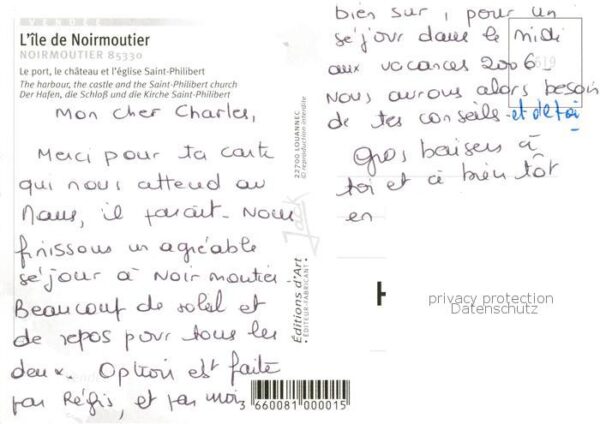 VENDÉE
L'île de Noirmoutier
NOIRMOUTIER 85330
Le port, le château et l'église Saint-Philibert
The harbour, the castle and the Saint-Philibert church
Der Hafen, die Schloß und die Kirche Saint-Philibert
Mon cher Charles,
Merci pour ta carte
qui nous attend au
Mans, il paraît. Nous
finissons un agréable
séjour à Noirmoutier.
Beaucoup de soleil et
de repos pour tous les
deux. Option est faite
par Régis, et par moi
bien sur, pour un
séjour dans le midi
aux vacances 2006.
Nous aurons alors besoin
de tes conseils et de toi
Gros baisers à
toi et à bientôt
en
22700 LOUANNEC
© reproduction interdite
Jack
Editions d'Art
• ÉDITEUR-FABRICANT •
3 660081 000015
619
privacy protection
Datenschutz